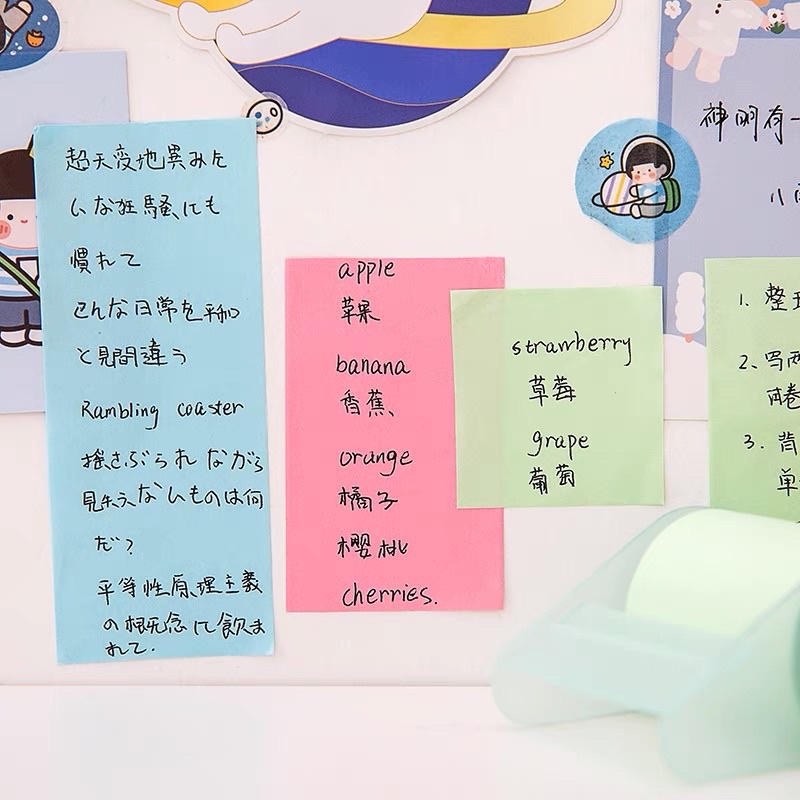 超天変地異みた
いな狂騒にも
慣れて
こんな日常を平和
と見間違う
Rambling coaster
揺さぶられながら
見失うないものは何
だ?
平等性原理主義
の概念に飲ま
れて.
apple
苹果
banana
香蕉
orange
橘子
樱桃
cherries.
strawberry
草莓
grape
葡萄
神明有一
八
1. 整
2、写两
两卷
3. 背
单